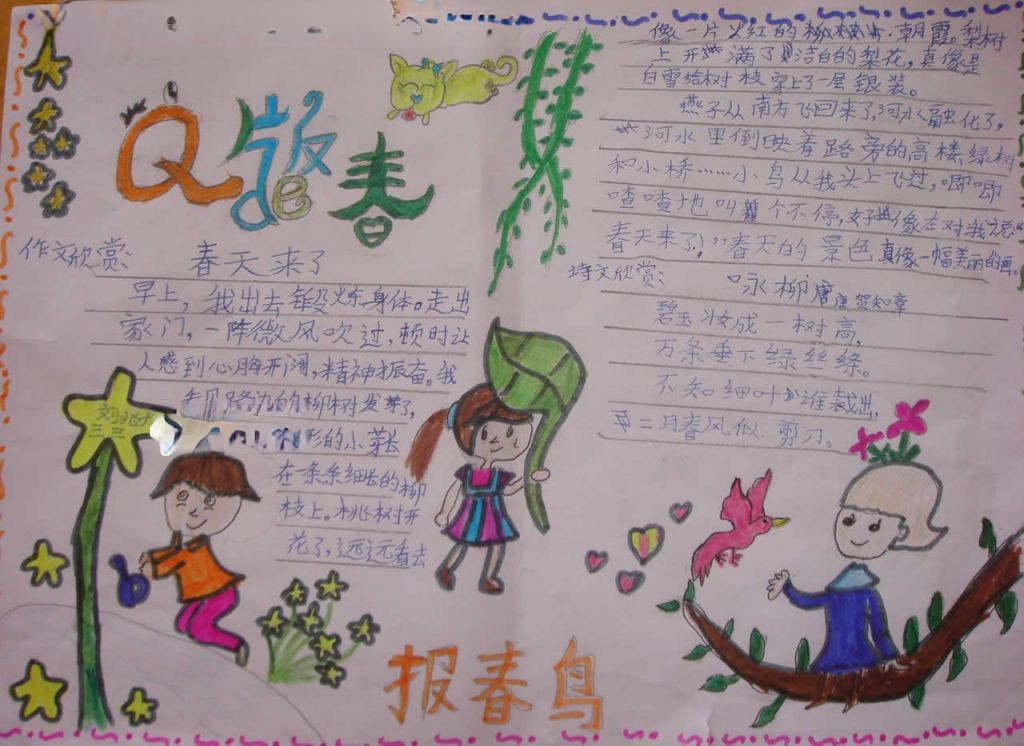 Q版de春
作文欣赏:
春天来了
早上，我出去锻炼身体。走出
家门，一阵微风吹过，顿时让
人感到心胸开阔，精神振奋。我
路边的柳树发芽了，
形的小芽长
在一条条细长的柳
枝上。桃树开
花了，远远看去
像一片火红的朝霞。梨树
上开满了洁白的梨花，真像是
白雪给树枝穿上了一层银装。
燕子从南方飞回来了，河水融化了，
河水里倒映着路旁的高楼、绿树
和小桥……小鸟从我头上飞过，唧唧
喳喳地叫个不停，好像在对我说：“
春天来了！”春天的景色真像一幅美丽的画。
诗文欣赏:
咏柳 唐 贺知章
碧玉妆成一树高，
万条垂下绿丝绦。
不知细叶谁裁出，
二月春风似剪刀。
报春鸟